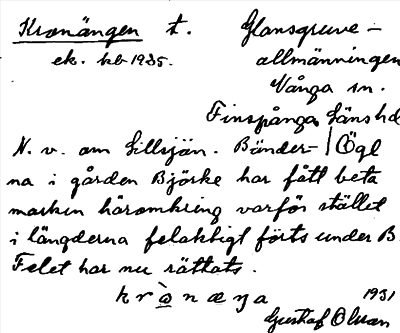 Kronängen t. Glansgruve-
ek. kb 1935. allmänningen
Vånga sn.
Finspånga länshd
N. v. om Lillsjön. Bönder- Ögl
na i gården Björke har fått beta
marken häromkring varför stället
i längderna felaktigt förts under B.
Felet har nu rättats.
krònæŋa 1931
Gustaf Olsson